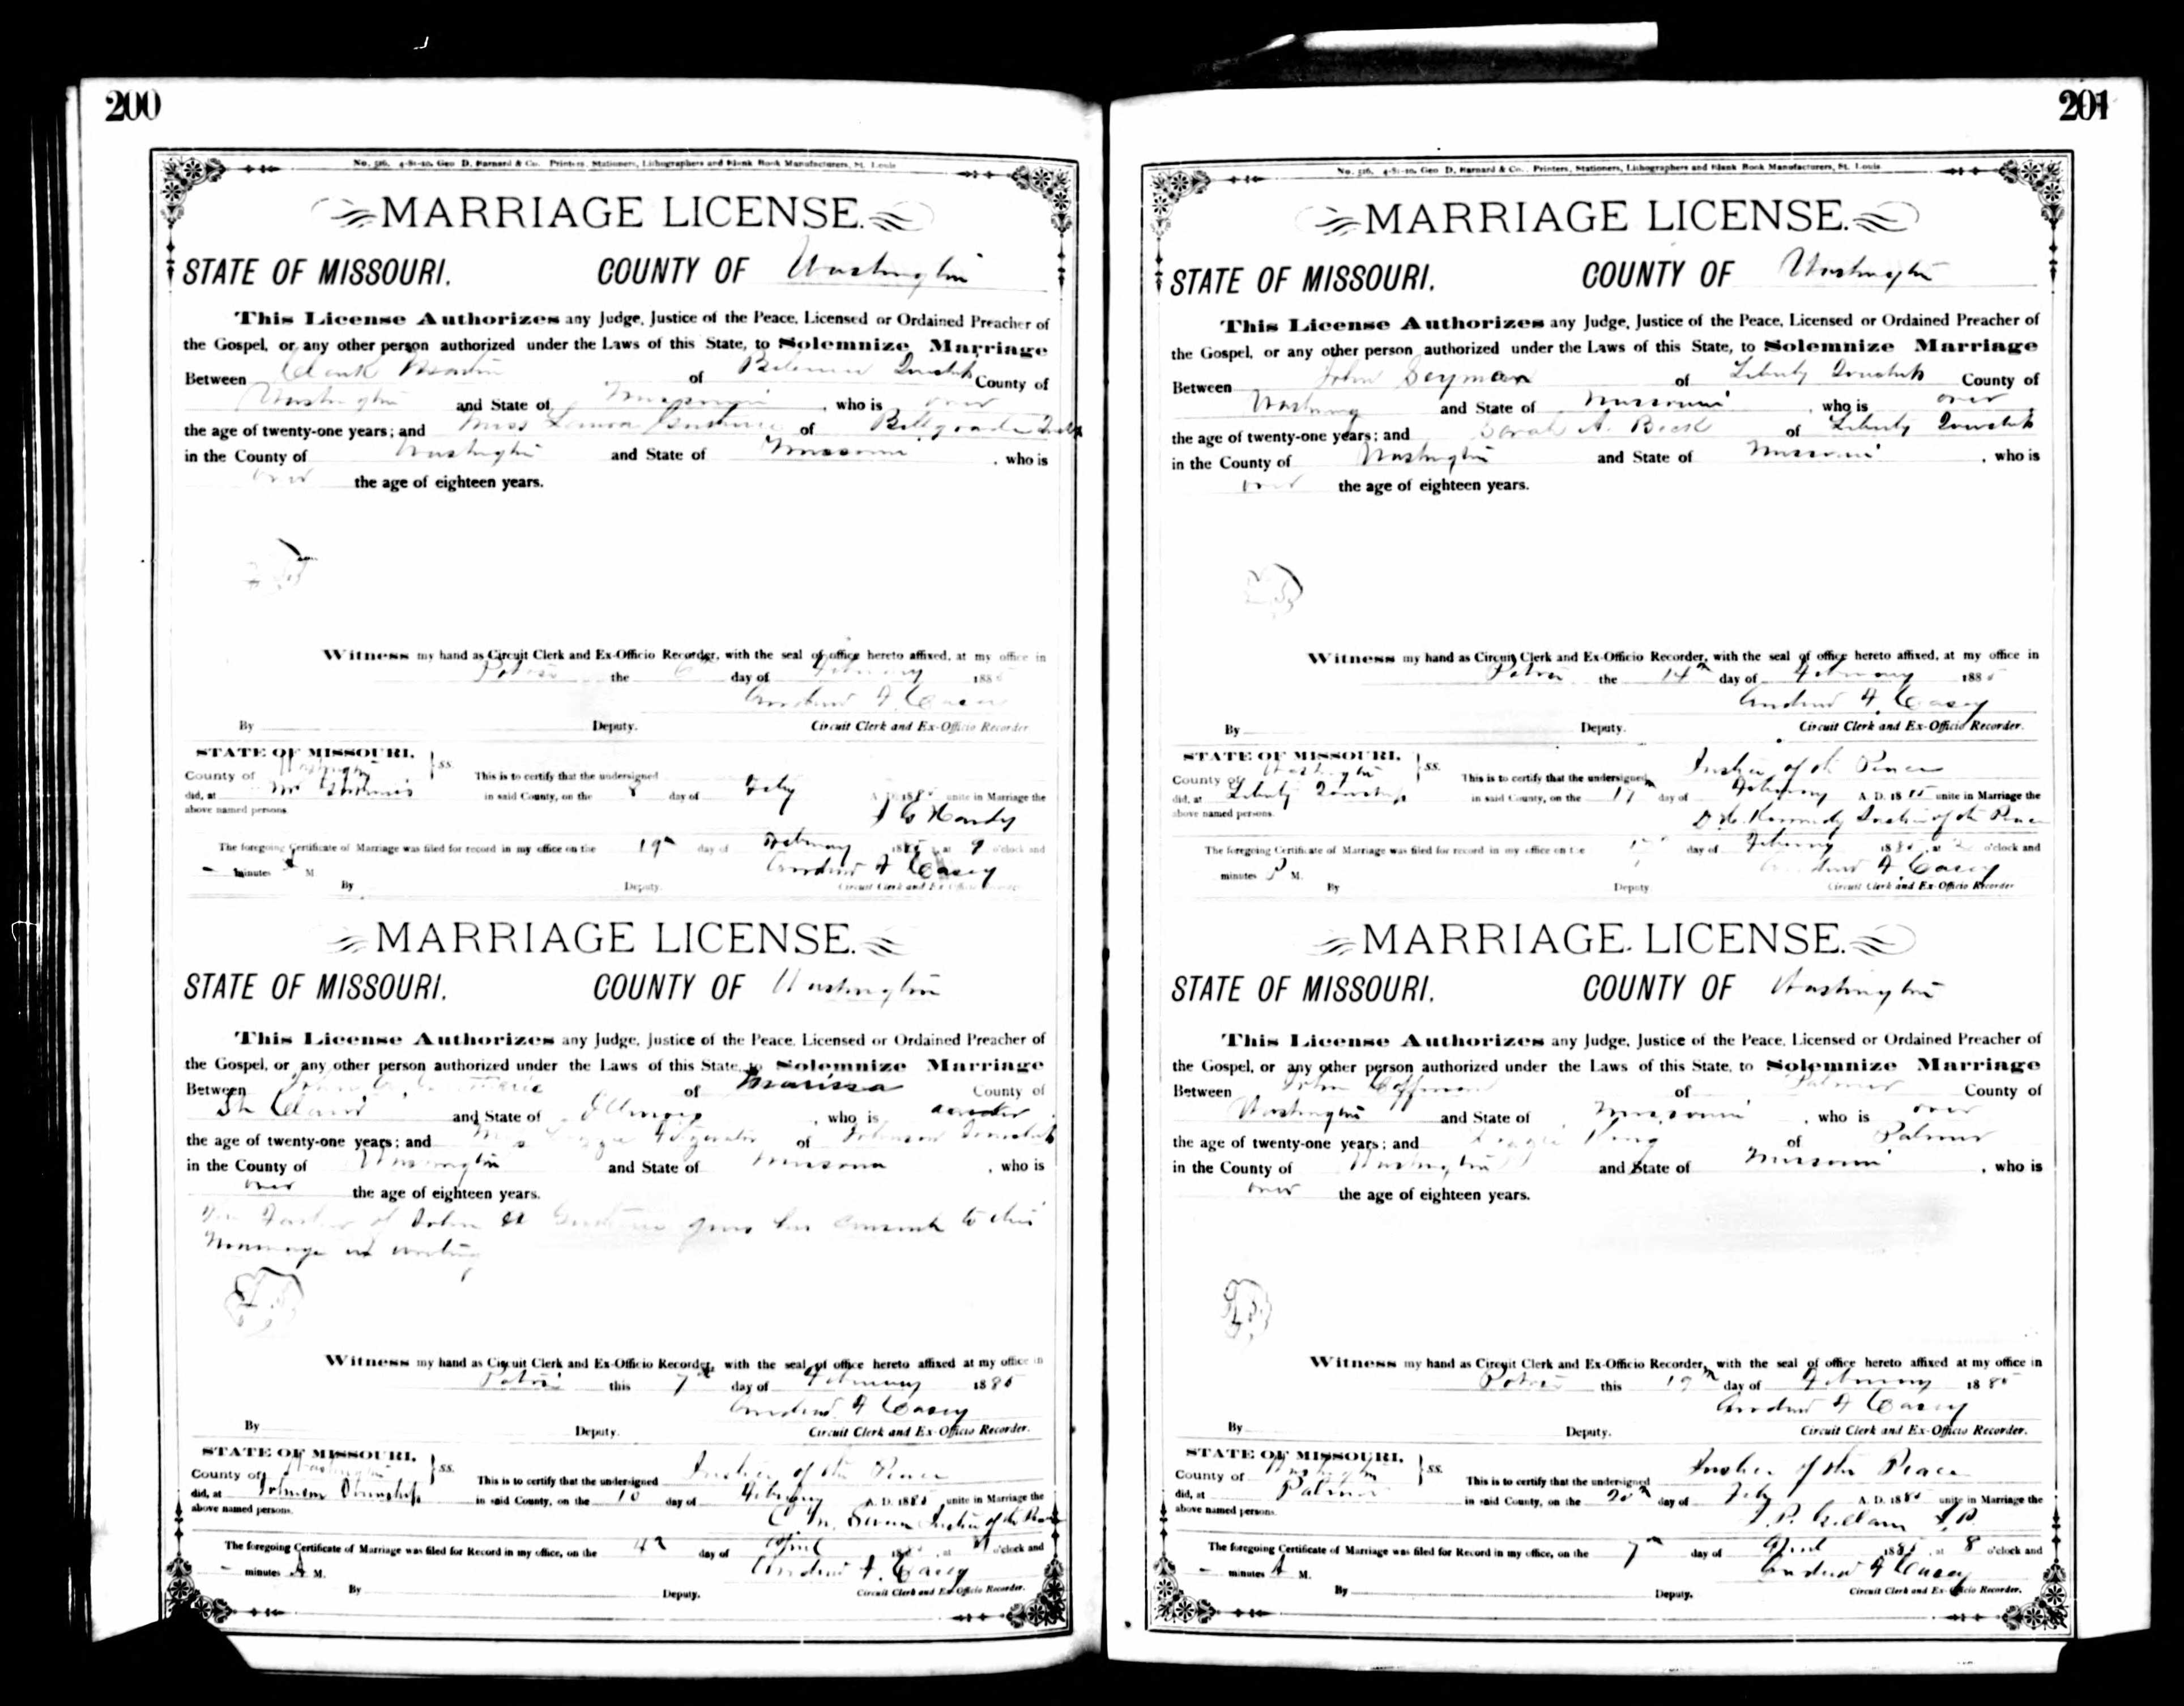 200
No. 516. 4-81-10. Geo D. Barnard & Co. Printers, Stationers, Lithographers and Blank Book Manufacturers, St. Louis
MARRIAGE LICENSE.
STATE OF MISSOURI. COUNTY OF Washington
This License Authorizes any Judge, Justice of the Peace, Licensed or Ordained Preacher of
the Gospel, or any other person authorized under the Laws of this State, to Solemnize Marriage
Between Clark Martin of County of
Washington and State of Missouri, who is over
the age of twenty-one years; and Miss of
in the County of Washington and State of Missouri, who is
over the age of eighteen years.
Witness my hand as Circuit Clerk and Ex-Officio Recorder, with the seal of office hereto affixed, at my office in
Potosi the 6 day of February 188
Andrew F. Casey
By Deputy. Circuit Clerk and Ex-Officio Recorder
STATE OF MISSOURI. } ss.
County of Washington This is to certify that the undersigned
did, at in said County, on the 8 day of Feby A. D. 188 unite in Marriage the
above named persons. Hardy
The foregoing Certificate of Marriage was filed for record in my office on the 19th day of February 188 at 9 o'clock and
minutes M. Andrew F Casey
By Deputy. Circuit Clerk and Ex Officio Recorder
MARRIAGE LICENSE.
STATE OF MISSOURI. COUNTY OF Washington
This License Authorizes any Judge, Justice of the Peace, Licensed or Ordained Preacher of
the Gospel, or any other person authorized under the Laws of this State, to Solemnize Marriage
Between John of Marissa County of
St Clair and State of Illinois, who is under
the age of twenty-one years; and of Johnson Township
in the County of Washington and State of Missouri, who is
over the age of eighteen years.
The Father of John gives his consent to this
Marriage in writing
Witness my hand as Circuit Clerk and Ex-Officio Recorder, with the seal of office hereto affixed at my office in
Potosi this 7th day of February 1885
Andrew F Casey
By Deputy. Circuit Clerk and Ex-Officio Recorder.
STATE OF MISSOURI. } ss.
County of Washington This is to certify that the undersigned Justice of the Peace
did, at Johnson Township in said County, on the 10 day of February A. D. 188 unite in Marriage the
above named persons. Justice of the Peace
The foregoing Certificate of Marriage was filed for Record in my office, on the 4th day of April 188 at o'clock and
minutes A M. Andrew F. Casey
By Deputy. Circuit Clerk and Ex-Officio Recorder.
201
No. 516. 4-81-10. Geo D. Barnard & Co. Printers, Stationers, Lithographers and Blank Book Manufacturers, St. Louis
MARRIAGE LICENSE.
STATE OF MISSOURI. COUNTY OF Washington
This License Authorizes any Judge, Justice of the Peace, Licensed or Ordained Preacher of
the Gospel, or any other person authorized under the Laws of this State, to Solemnize Marriage
Between John Seyman of Liberty Township County of
Washing and State of Missouri, who is over
the age of twenty-one years; and Sarah A. Beck of Liberty Township
in the County of Washington and State of Missouri, who is
over the age of eighteen years.
Witness my hand as Circuit Clerk and Ex-Officio Recorder, with the seal of office hereto affixed, at my office in
Potosi the 14th day of February 188
Andrew F. Casey
By Deputy. Circuit Clerk and Ex-Officio Recorder.
STATE OF MISSOURI. } ss.
County of Washington This is to certify that the undersigned Justice of the Peace
did, at Liberty Township in said County, on the 17 day of February A. D. 18 unite in Marriage the
above named persons. Kennedy Justice of the Peace
The foregoing Certificate of Marriage was filed for record in my office on the day of February 188 at o'clock and
minutes P M. Andrew F Casey
By Deputy Circuit Clerk and Ex-Officio Recorder
MARRIAGE LICENSE.
STATE OF MISSOURI. COUNTY OF Washington
This License Authorizes any Judge, Justice of the Peace, Licensed or Ordained Preacher of
the Gospel, or any other person authorized under the Laws of this State, to Solemnize Marriage
Between John Coffman of Palmer County of
Washington and State of Missouri, who is over
the age of twenty-one years; and King of Palmer
in the County of Washington and State of Missouri, who is
over the age of eighteen years.
Witness my hand as Circuit Clerk and Ex-Officio Recorder, with the seal of office hereto affixed at my office in
Potosi this 19th day of February 188
Andrew F Casey
By Deputy. Circuit Clerk and Ex-Officio Recorder.
STATE OF MISSOURI. } ss.
County of Washington This is to certify that the undersigned Justice of the Peace
did, at Palmer in said County, on the 20th day of Feby A. D. 188 unite in Marriage the
above named persons. J.P.
The foregoing Certificate of Marriage was filed for Record in my office, on the 7th day of April 1885, at 8 o'clock and
minutes A M. Andrew F Casey
By Deputy. Circuit Clerk and Ex-Officio Recorder.